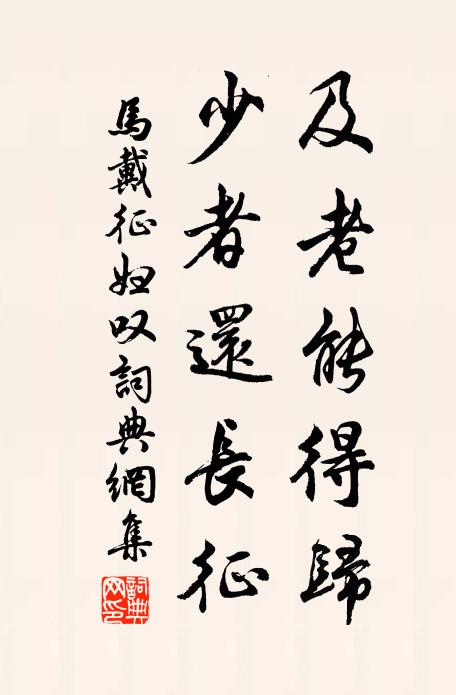 及老能得歸
少者還長征
馬戴征妇叹詞典網集
詞典网印